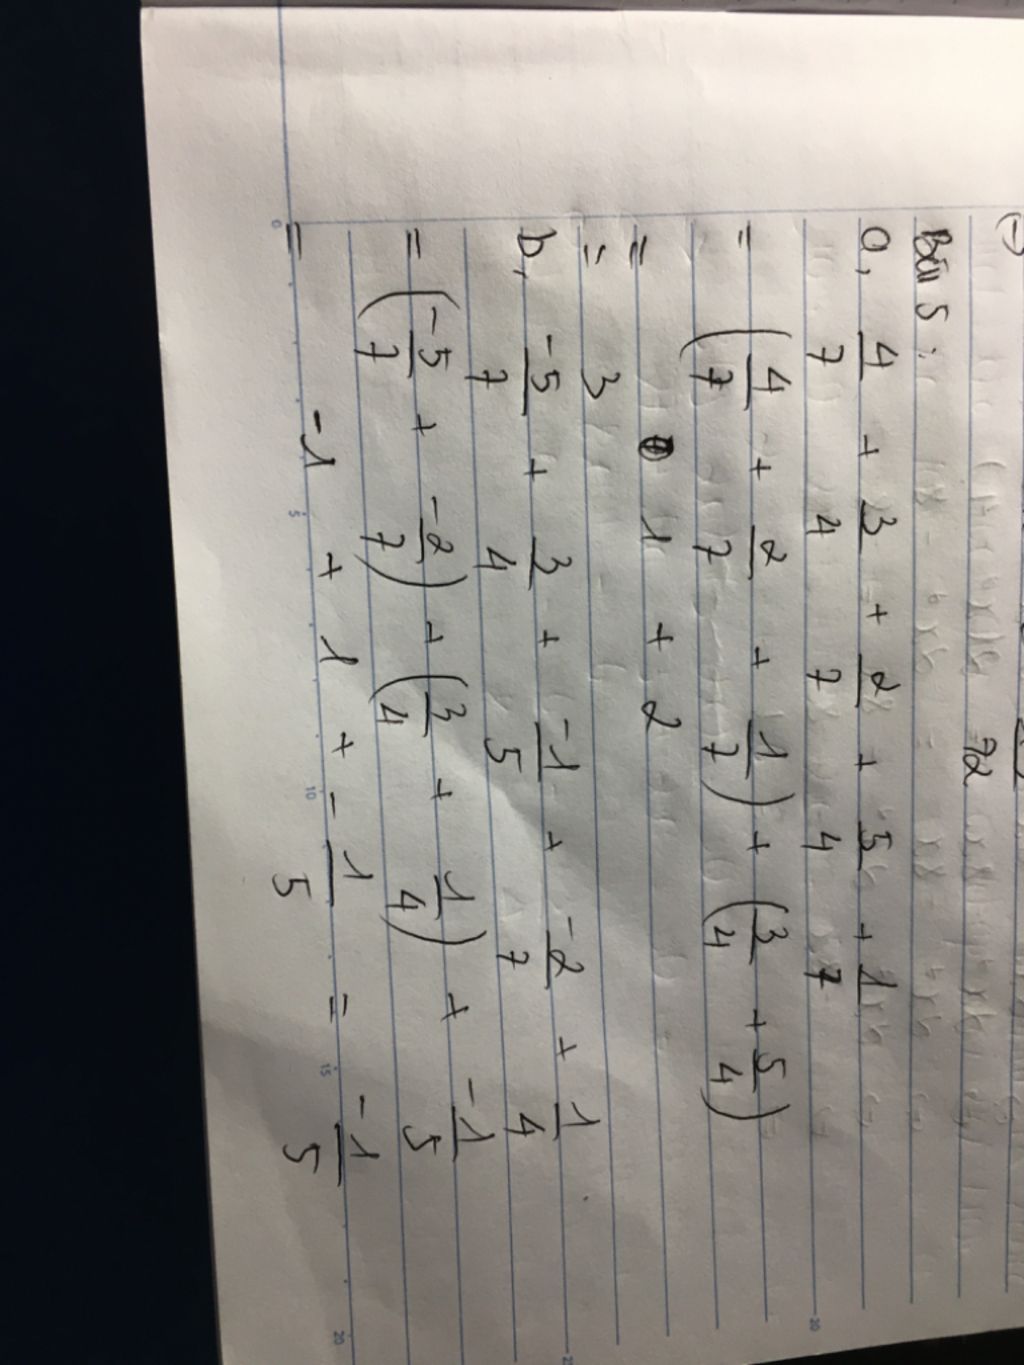 72
Bài 5 :
a, 4/7 + 3/4 + 2/7 + 5/4 + 1/7
= (4/7 + 2/7 + 1/7) + (3/4 + 5/4)
= 1 + 2
= 3
b, -5/7 + 3/4 + -1/5 + -2/7 + 1/4
= (-5/7 + -2/7) + (3/4 + 1/4) + -1/5
= -1 + 1 + -1/5 = -1/5